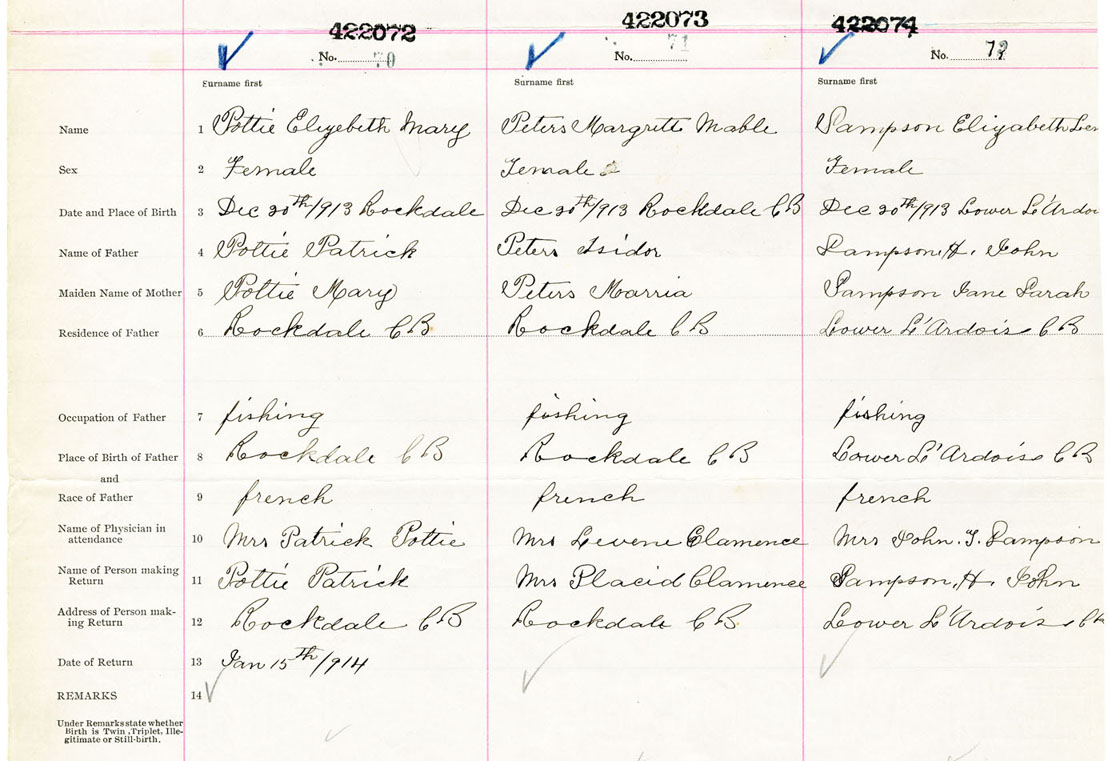 422072 422073 422074
No. 70 No. 71 No. 72
Surname first Surname first Surname first
Name 1 Pottie Elizebeth Mary Peters Margrette Mable Sampson Elizabeth
Sex 2 Female Female Female
Date and Place of Birth 3 Dec 20th/913 Rockdale Dec 20th/913 Rockdale CB Dec 20th/913 Lower L'Ardoi
Name of Father 4 Pottie Patrick Peters Isidor Sampson, H. John
Maiden Name of Mother 5 Pottie Mary Peters Marria Sampson Jane Sarah
Residence of Father 6 Rockdale CB Rockdale CB Lower L'Ardoise CB
Occupation of Father 7 fishing fishing fishing
Place of Birth of Father 8 Rockdale CB Rockdale CB Lower L'Ardoise CB
and
Race of Father 9 french french french
Name of Physician in
attendance 10 Mrs Patrick Pottie Mrs Levene Clamence Mrs John. J. Sampson
Name of Person making
Return 11 Pottie Patrick Mrs Placid Clamence Sampson, H. John
Address of Person mak-
ing Return 12 Rockdale CB Rockdale CB Lower L'Ardoise
Date of Return 13 Jan 15th/914
REMARKS 14
Under Remarks state whether
Birth is Twin, Triplet, Ille-
gitimate or Still-birth.